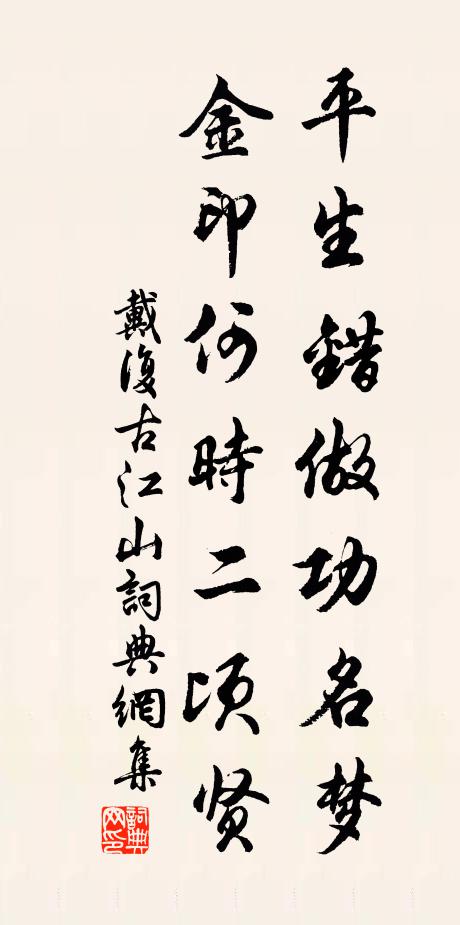 平生錯做功名梦
金印何時二顷贤
戴復古江山詞典網集
詞典网印